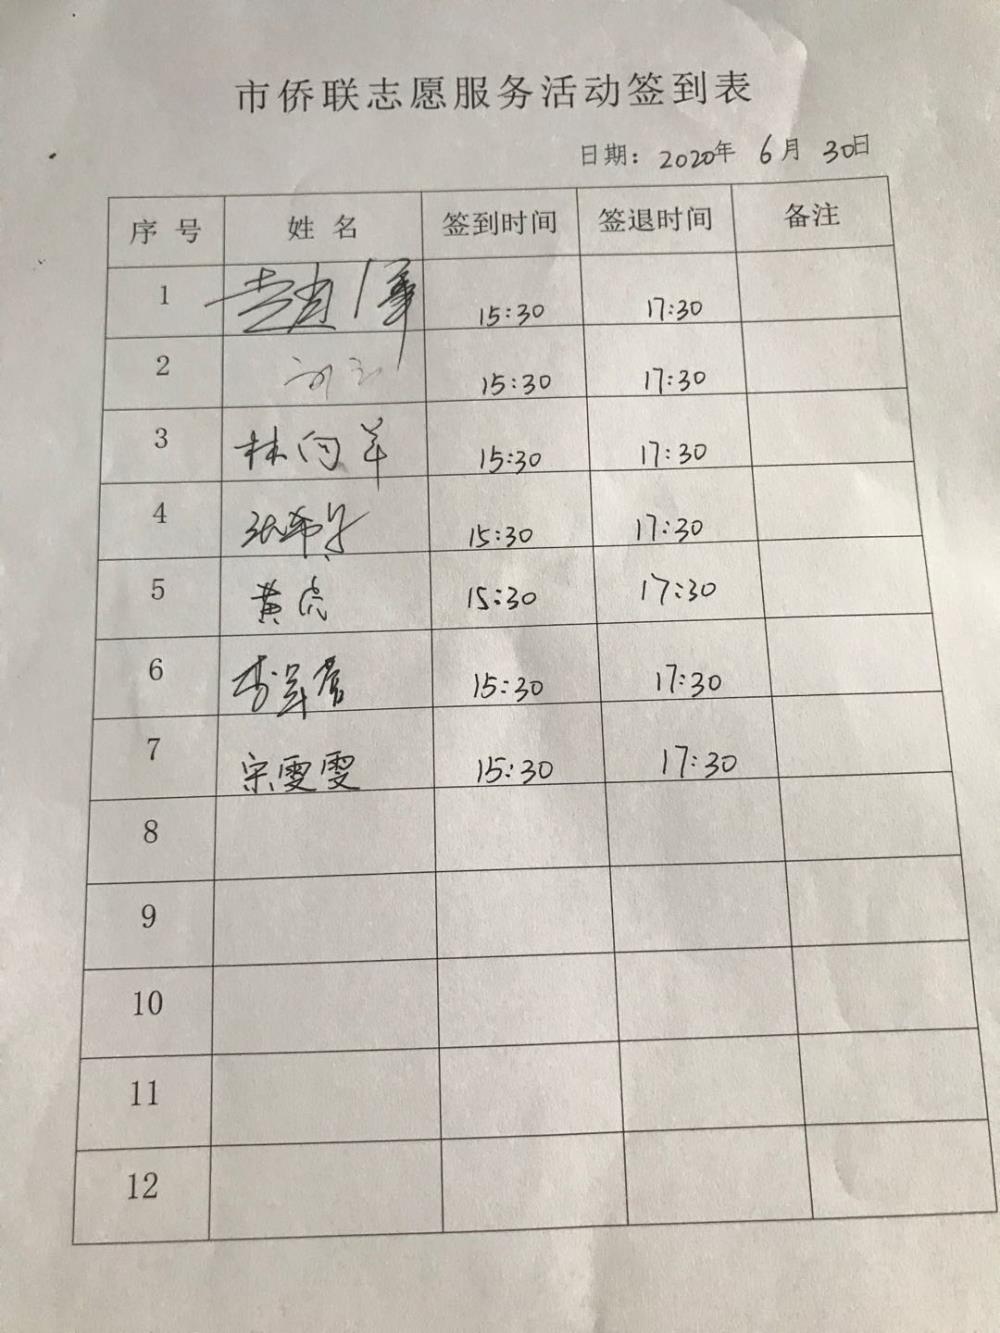 市侨联志愿服务活动签到表
日期：2020年 6月 30日
序号 姓名 签到时间 签退时间 备注
1 15:30 17:30
2 15:30 17:30
3 林向羊 15:30 17:30
4 15:30 17:30
5 黄虎 15:30 17:30
6 15:30 17:30
7 宋雯雯 15:30 17:30
8
9
10
11
12